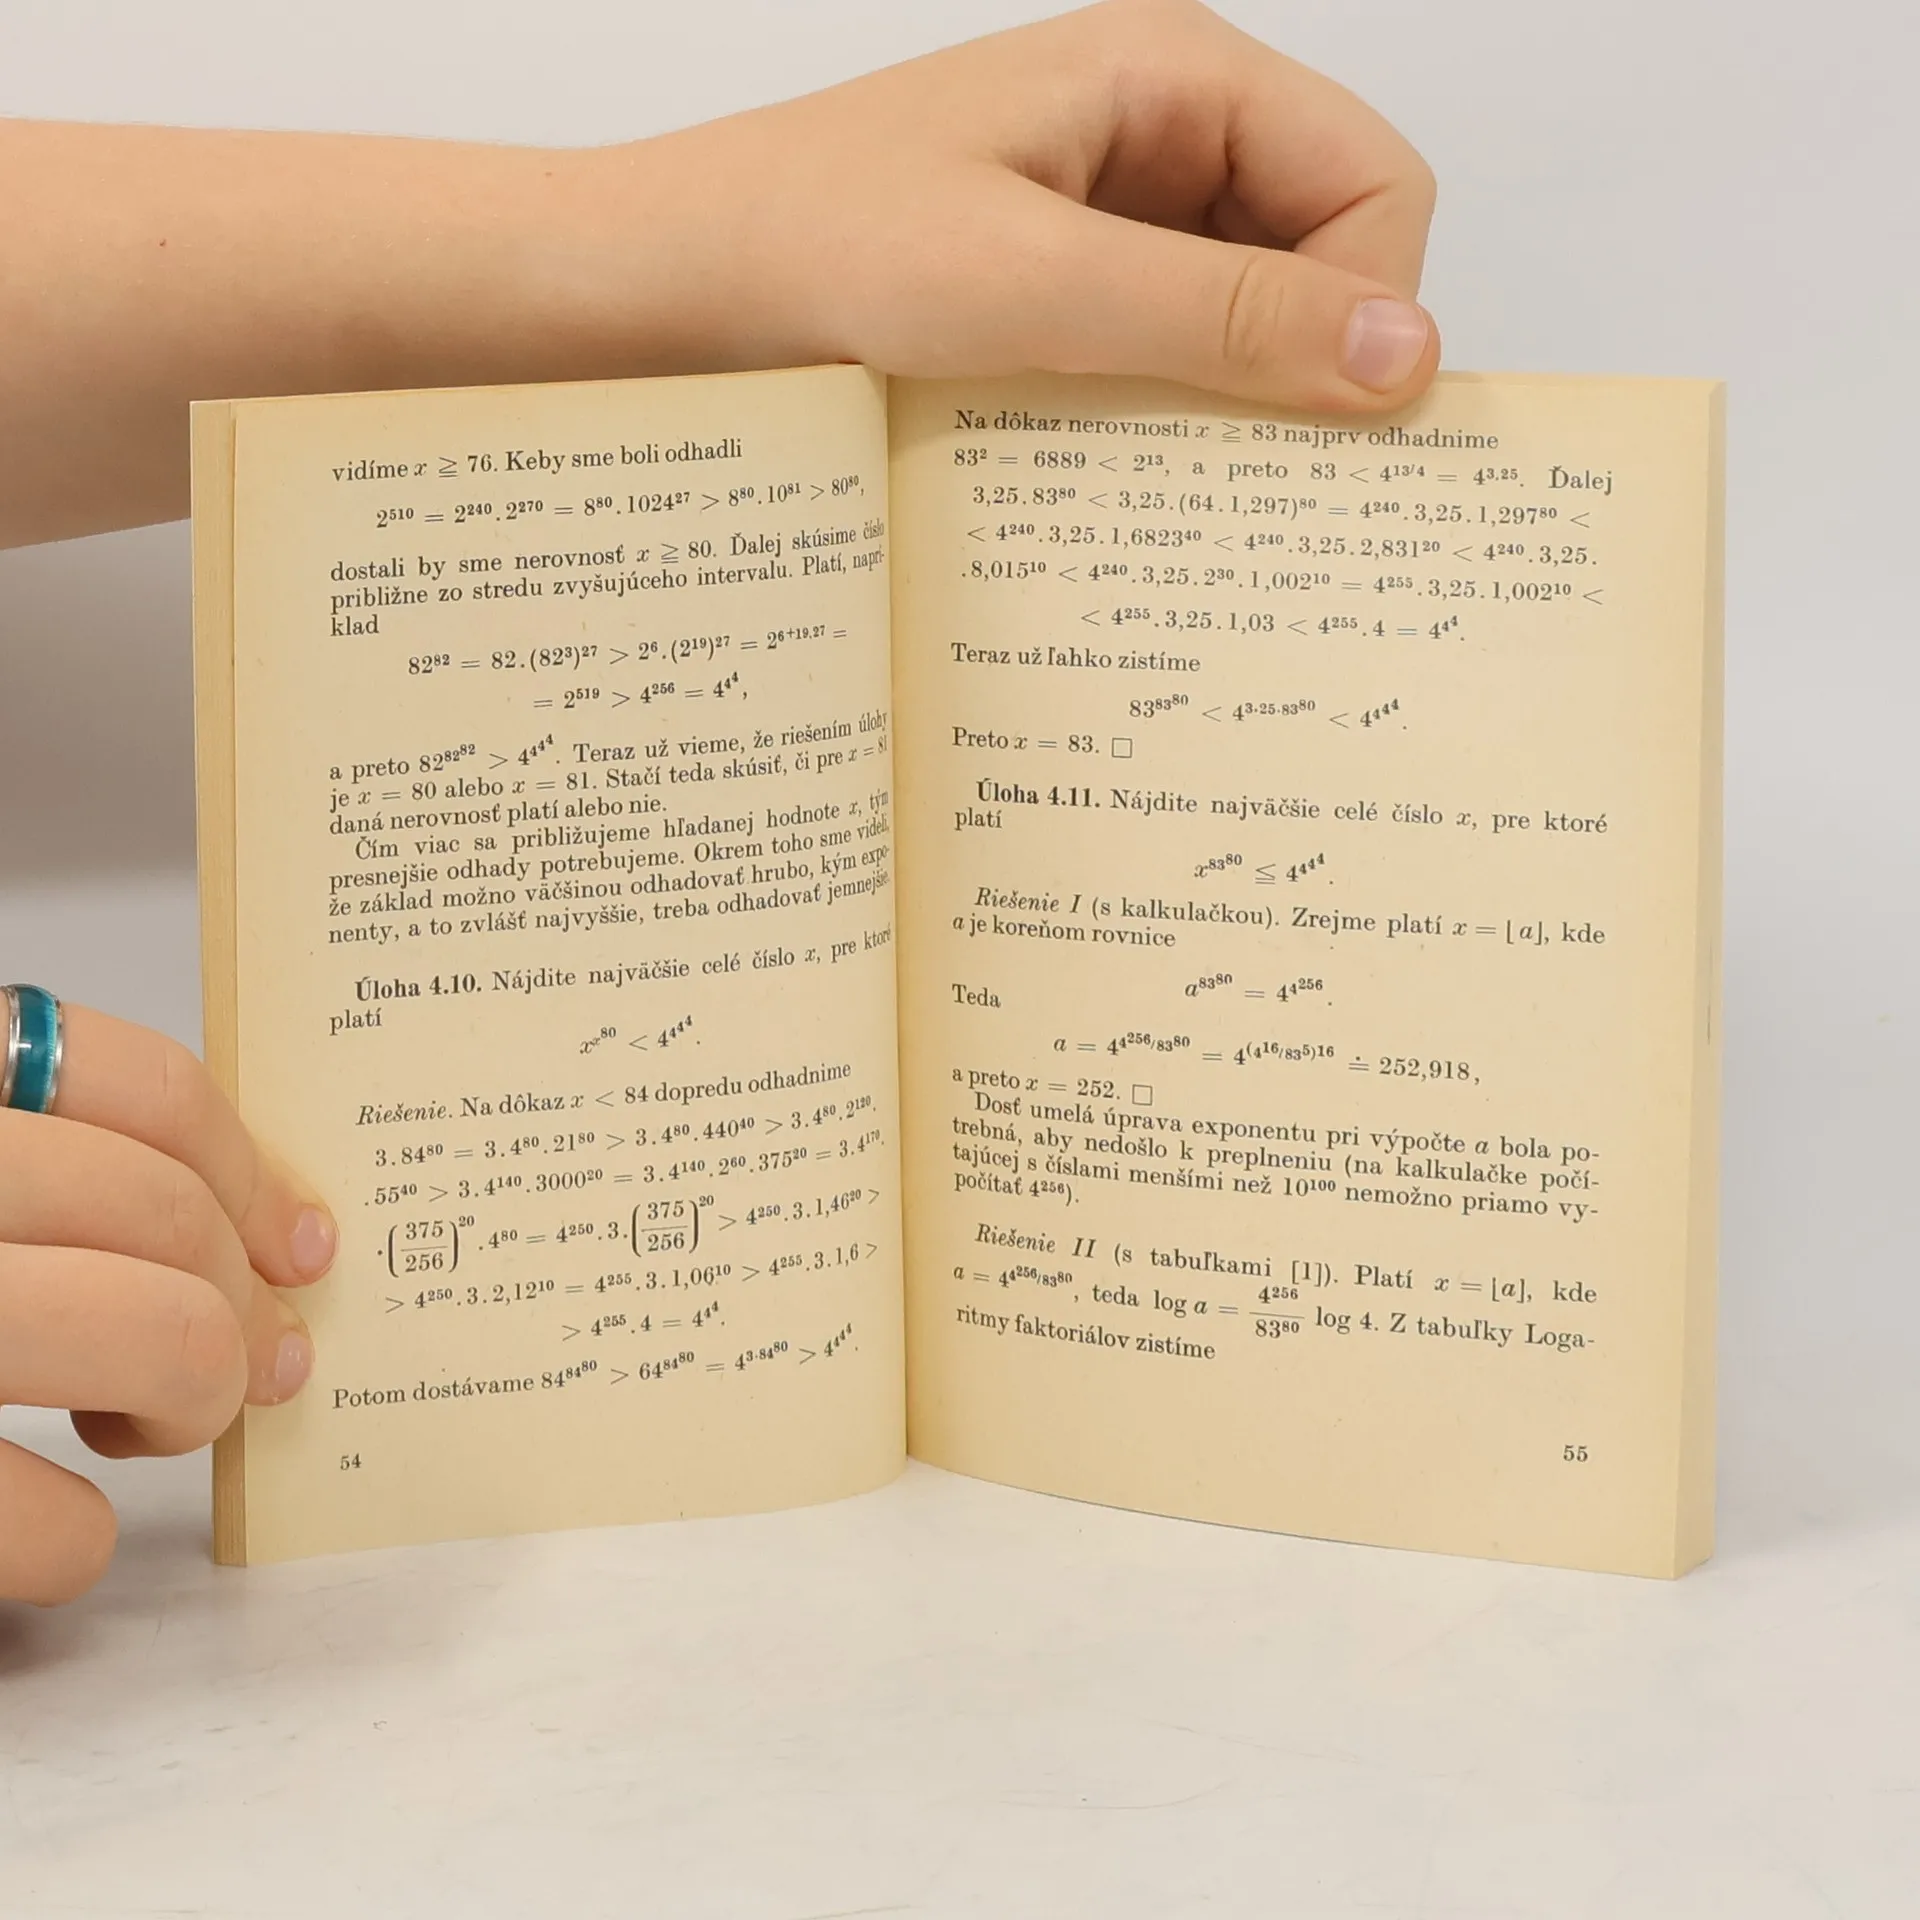 vidíme x ≧ 76. Keby sme boli odhadli
2⁵¹⁰ = 2²⁴⁰ . 2²⁷⁰ = 8⁸⁰ . 1024²⁷ > 8⁸⁰ . 10⁸¹ > 80⁸⁰,
dostali by sme nerovnosť x ≧ 80. Ďalej skúsime číslo
približne zo stredu zvyšujúceho intervalu. Platí, naprí-
klad
82⁸² = 82 . (82³)²⁷ > 2⁶ . (2¹⁹)²⁷ = 2^(6+19.27) =
= 2⁵¹⁹ > 4²⁵⁶ = 4^4^4,
a preto 82^82^82 > 4^4^4^4. Teraz už vieme, že riešením úlohy
je x = 80 alebo x = 81. Stačí teda skúsiť, či pre x = 81
daná nerovnosť platí alebo nie.
Čím viac sa približujeme hľadanej hodnote x, tým
presnejšie odhady potrebujeme. Okrem toho sme videli,
že základ možno väčšinou odhadovať hrubo, kým expo-
nenty, a to zvlášť najvyššie, treba odhadovať jemnejšie.
Úloha 4.10. Nájdite najväčšie celé číslo x, pre ktoré
platí
x^x^80 < 4^4^4^4.
Riešenie. Na dôkaz x < 84 dopredu odhadnime
3 . 84⁸⁰ = 3 . 4⁸⁰ . 21⁸⁰ > 3 . 4⁸⁰ . 440⁴⁰ > 3 . 4⁸⁰ . 2¹²⁰ .
. 55⁴⁰ > 3 . 4¹⁴⁰ . 3000²⁰ = 3 . 4¹⁴⁰ . 2⁶⁰ . 375²⁰ = 3 . 4¹⁷⁰ .
. (375/256)²⁰ . 4⁸⁰ = 4²⁵⁰ . 3 . (375/256)²⁰ > 4²⁵⁰ . 3 . 1,46²⁰ >
> 4²⁵⁰ . 3 . 2,12¹⁰ = 4²⁵⁵ . 3 . 1,06¹⁰ > 4²⁵⁵ . 3 . 1,6 >
> 4²⁵⁵ . 4 = 4^4^4.
Potom dostávame 84^84^80 > 64^84^80 = 4^(3·84^80) > 4^4^4^4.
54
Na dôkaz nerovnosti x ≧ 83 najprv odhadnime
83² = 6889 < 2¹³, a preto 83 < 4^(13/4) = 4^(3,25). Ďalej
3,25 . 83⁸⁰ < 3,25 . (64 . 1,297)⁸⁰ = 4²⁴⁰ . 3,25 . 1,297⁸⁰ <
< 4²⁴⁰ . 3,25 . 1,6823⁴⁰ < 4²⁴⁰ . 3,25 . 2,831²⁰ < 4²⁴⁰ . 3,25 .
. 8,015¹⁰ < 4²⁴⁰ . 3,25 . 2³⁰ . 1,002¹⁰ = 4²⁵⁵ . 3,25 . 1,002¹⁰ <
< 4²⁵⁵ . 3,25 . 1,03 < 4²⁵⁵ . 4 = 4^4^4.
Teraz už ľahko zistíme
83^83^80 < 4^(3·25·83^80) < 4^4^4^4.
Preto x = 83. □
Úloha 4.11. Nájdite najväčšie celé číslo x, pre ktoré
platí
x^83^80 ≦ 4^4^4^4.
Riešenie I (s kalkulačkou). Zrejme platí x = ⌊a⌋, kde
a je koreňom rovnice
a^83^80 = 4^4^256.
Teda
a = 4^(4^256/83^80) = 4^((4^16/83^5)16) ≐ 252,918,
a preto x = 252. □
Dosť umelá úprava exponentu pri výpočte a bola po-
trebná, aby nedošlo k preplneniu (na kalkulačke počí-
tajúcej s číslami menšími než 10¹⁰⁰ nemožno priamo vy-
počítať 4²⁵⁶).
Riešenie II (s tabuľkami [1]). Platí x = ⌊a⌋, kde
a = 4^(4^256/83^80), teda log a = 4²⁵⁶/83⁸⁰ log 4. Z tabuľky Loga-
ritmy faktoriálov zistíme
55